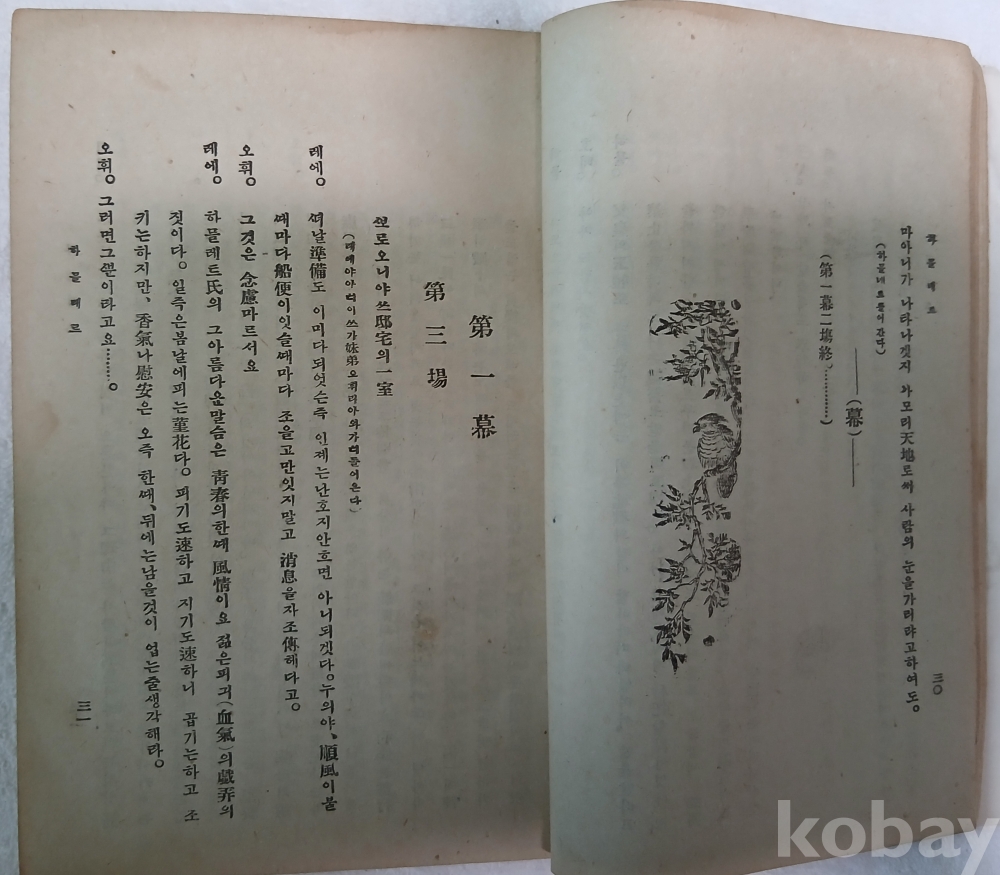 하믈레트
三〇
마아니가 나타나겟지 아모리 天地로써 사람의 눈을가리랴고하여도。
(하믈레트들어 간다)
———(幕)———
(第一幕二場終。…………)
第 一 幕
第 三 場
(레에야아티이쓰가 妹弟오휘리아와가티들어온다)
레에。 떠날準備도 이미다되엇슨즉 인제는난호지안흐면 아니되겟다。누의야、順風이불
때마다船便이잇슬때마다 조을고만잇지말고 消息을자조傳해다고。
오휘。 그것은 念慮마르서요
레에。 하믈레트氏의 그아름다운말슴은 靑春의한때 風情이요 젊은피긔(血氣)의戱弄의
짓이다。일즉은봄날에피는菫花다。피기도速하고 지기도速하니 곱기는하고 조
키는하지만、香氣나慰安은 오즉 한때、뒤에는남을것이 업는줄생각해라。
오휘。 그러면그쁜이라고요………。
하믈레트
三一
kobay